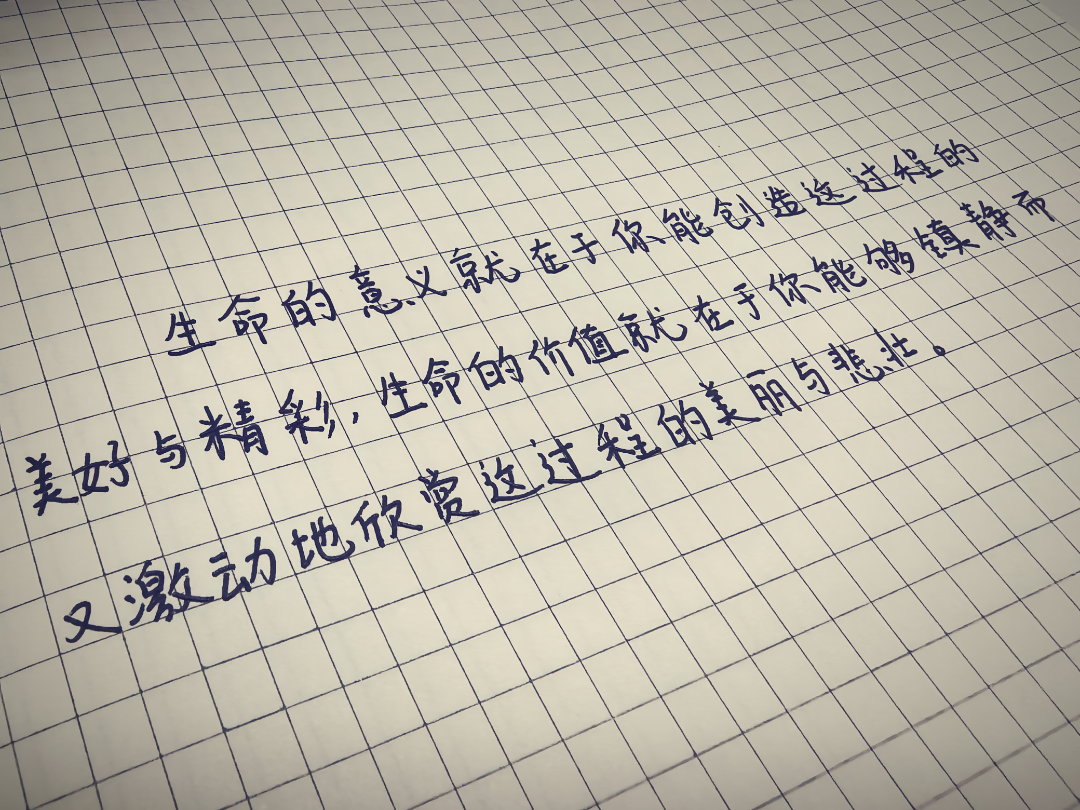 生命的意义就在于你能创造这过程的
美好与精彩,生命的价值就在于你能够镇静而
又激动地欣赏这过程的美丽与悲壮。